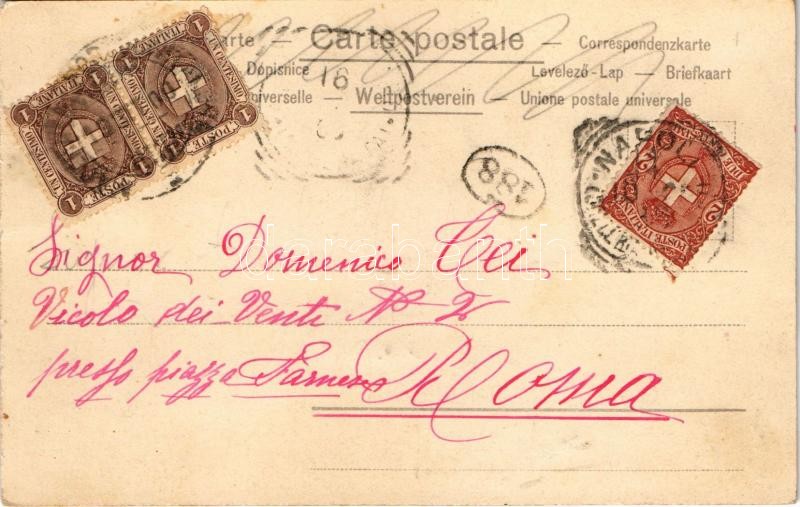 Carte — Carte postale — Correspondenzkarte
Dopisnice Levelező-Lap — Briefkaart
universelle — Weltpostverein — Unione postale universale
1 POSTE ITALIANE 1
1 UN CENTESIMO 1
1 POSTE ITALIANE 1
1 UN CENTESIMO 1
16
188
NAPOLI
2 POSTE ITALIANE 2
DUE CENTESIMI
Signor Domenico Cei
Vicolo dei Venti No 2
presso piazza Farnese Roma
darabanth